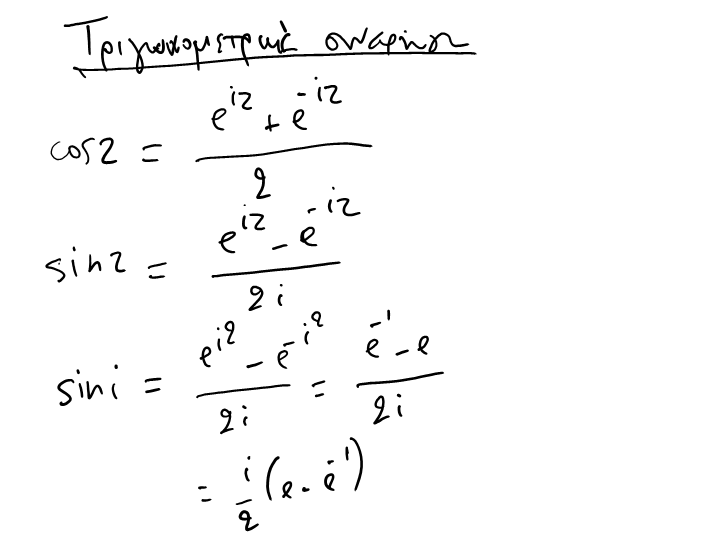 Τριγωνομετρικές συναρτήσεις
cos z = (e^{iz} + e^{-iz}) / 2
sin z = (e^{iz} - e^{-iz}) / 2i
sin i = (e^{i²} - e^{-i²}) / 2i = (e^{-1} - e) / 2i
= i/2 (e - e^{-1})